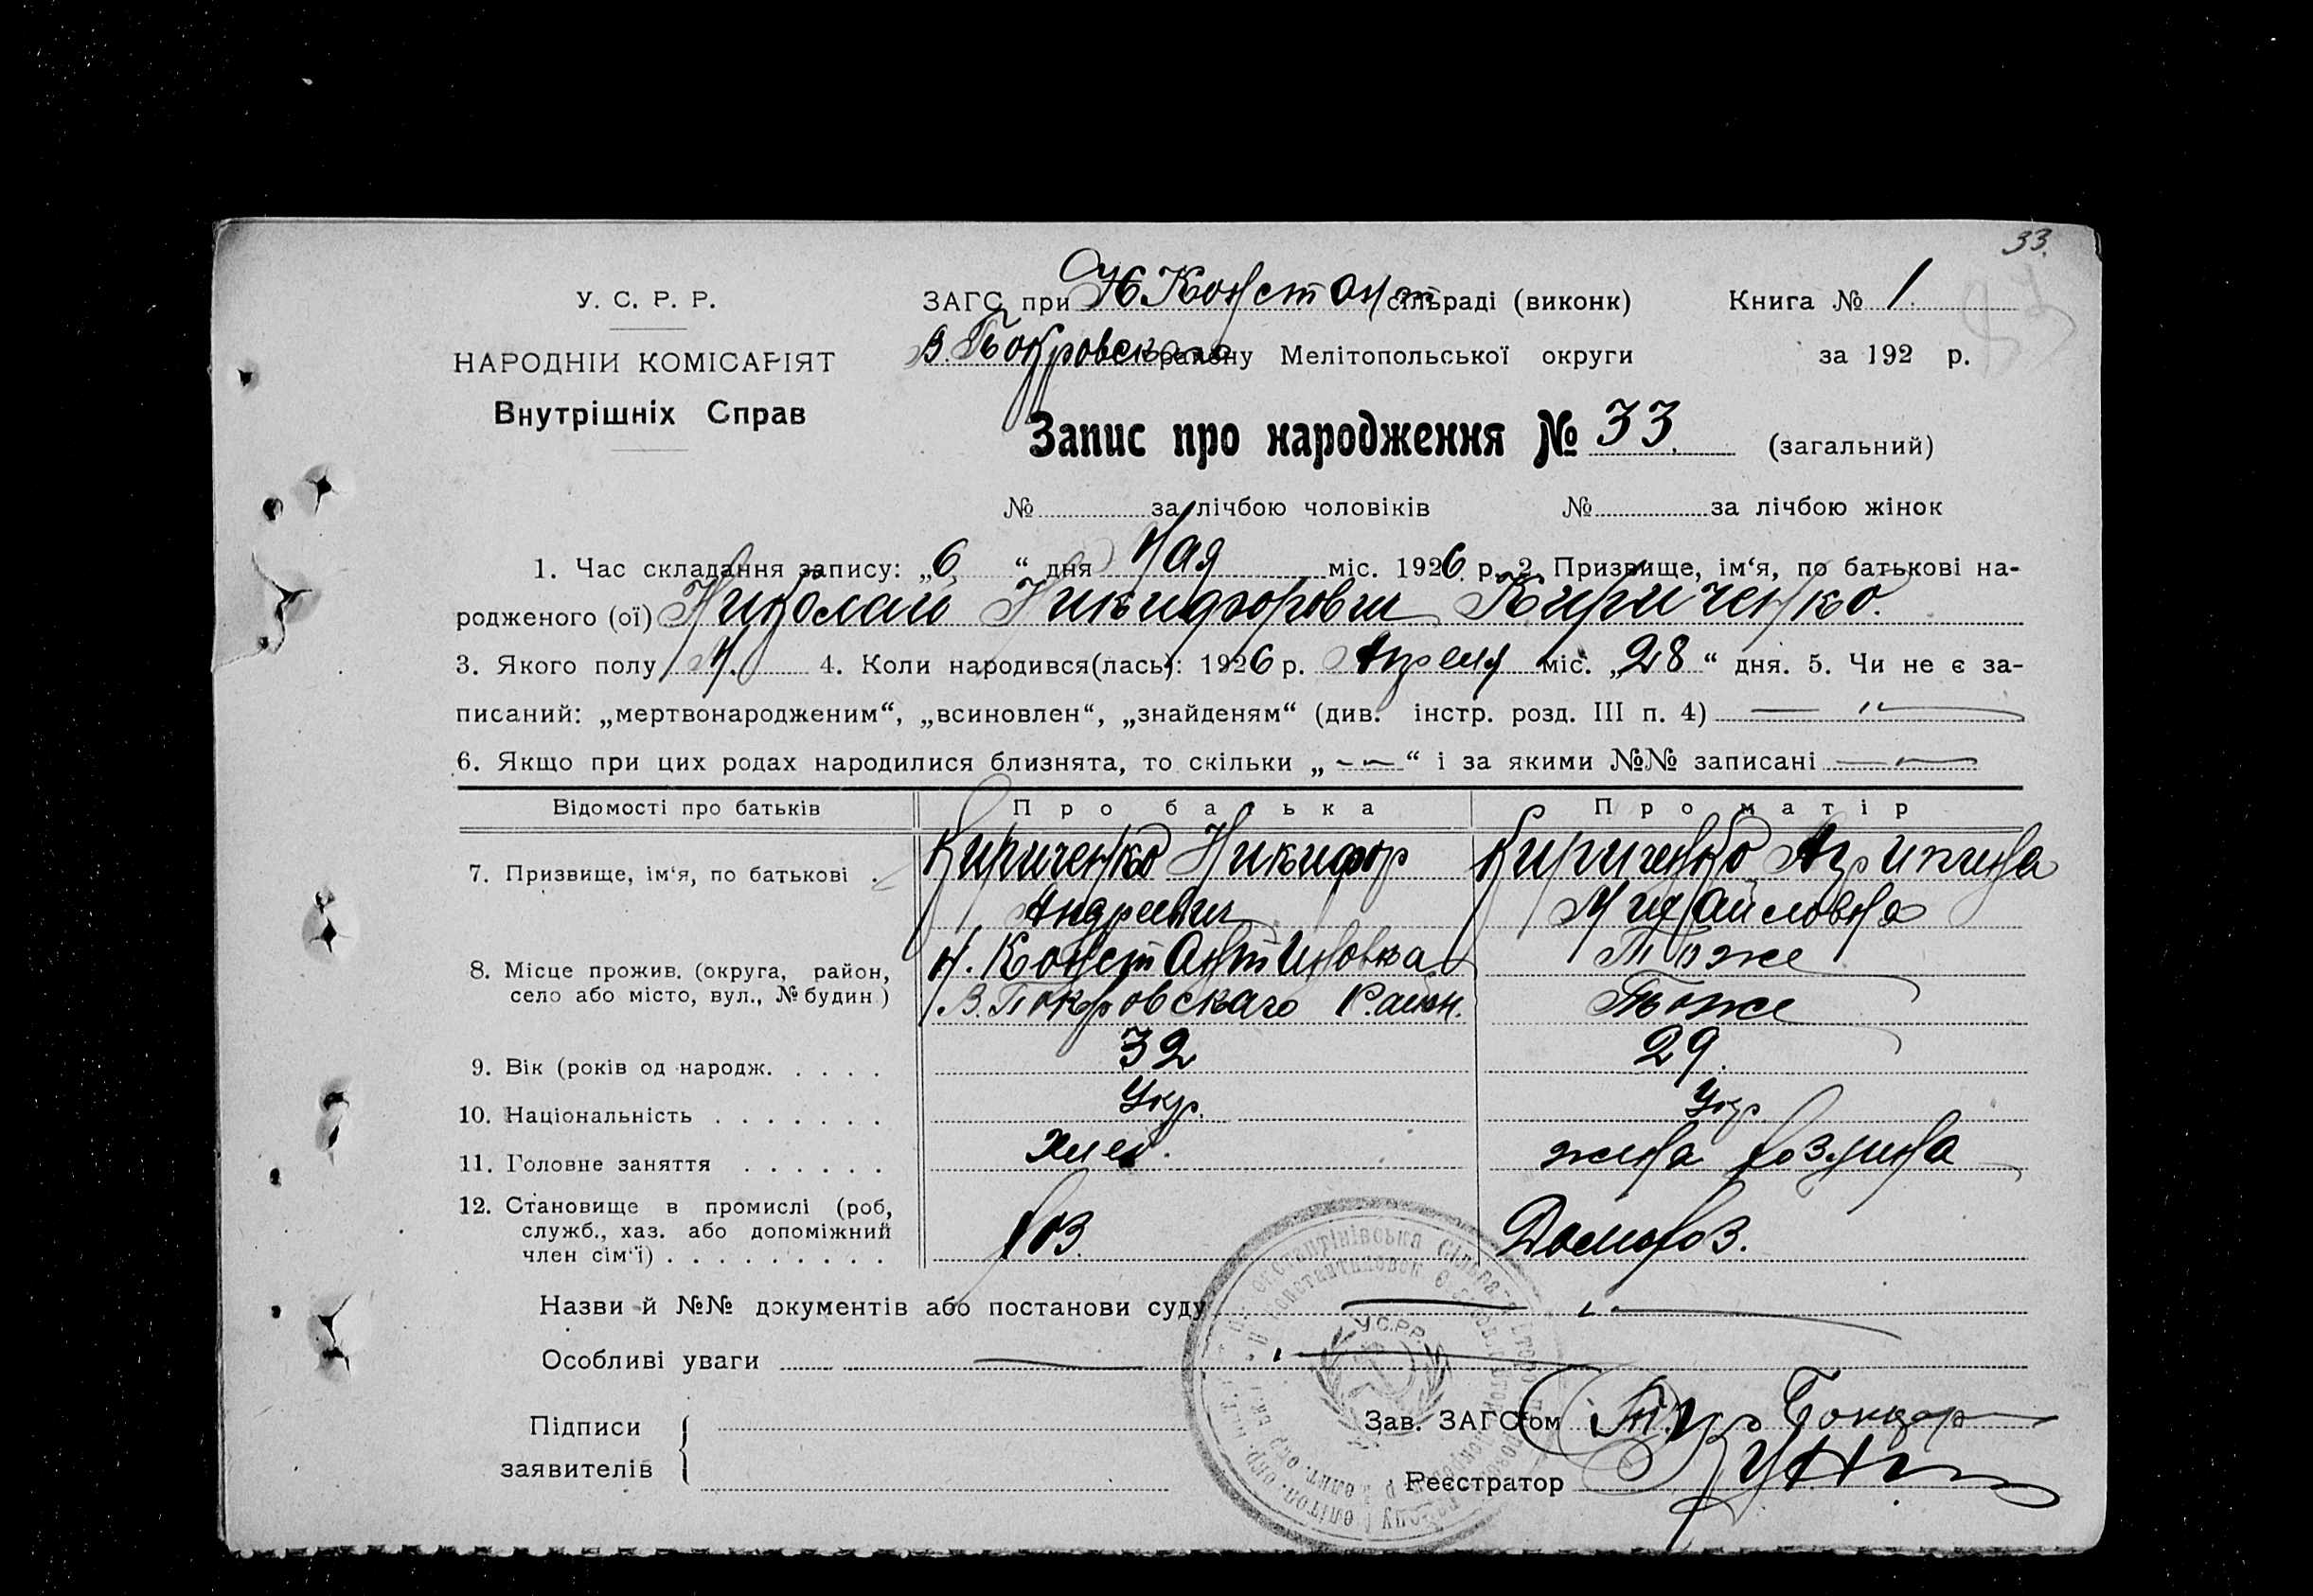 33.
У. С. Р. Р.
НАРОДНІЙ КОМІСАРІЯТ
Внутрішніх Справ
ЗАГС при Н Констант сільраді (виконк)
Книга № 1.
В. Покровскаго району Мелітопольської округи
за 192 р.
Запис про народження № 33. (загальний)
№ за лічбою чоловіків № за лічбою жінок
1. Час складання запису: „6 “ дня Мая міс. 1926 р. 2. Призвище, ім‘я, по батькові на-
родженого (ої) Николай Никифорович Кириченко.
3. Якого полу М. 4. Коли народився(лась): 1926 р. Апреля міс. „28“ дня. 5. Чи не є за-
писаний: „мертвонародженим“, „всиновлен“, „знайденям“ (див. інстр. розд. III п. 4) — „ —
6. Якщо при цих родах народилися близнята, то скільки „ – – “ і за якими №№ записані — –
Відомості про батьків Про батька Про матір
7. Призвище, ім‘я, по батькові . Кириченко Никифор Кириченко Агрипина
Андреевич Михайловна
8. Місце прожив. (округа, район, село або місто, вул., № будин.) Н. Константиновка Тоже
В. Покровскаго Район. Тоже
9. Вік (років од народж. . . . . 32 29.
10. Національність . . . . . . . Укр. Укр
11. Головне заняття . . . . . . Хлеб. жена хозяина
12. Становище в промислі (роб,
служб., хаз. або допоміжний
член сім‘ї) . . . . . . . . . Хоз. Домохоз.
Назви й №№ документів або постанови суду —
Особливі уваги —
У.С.Р.Р.
Підписи
заявителів
Зав. ЗАГС‘ом Бондар
Реєстратор